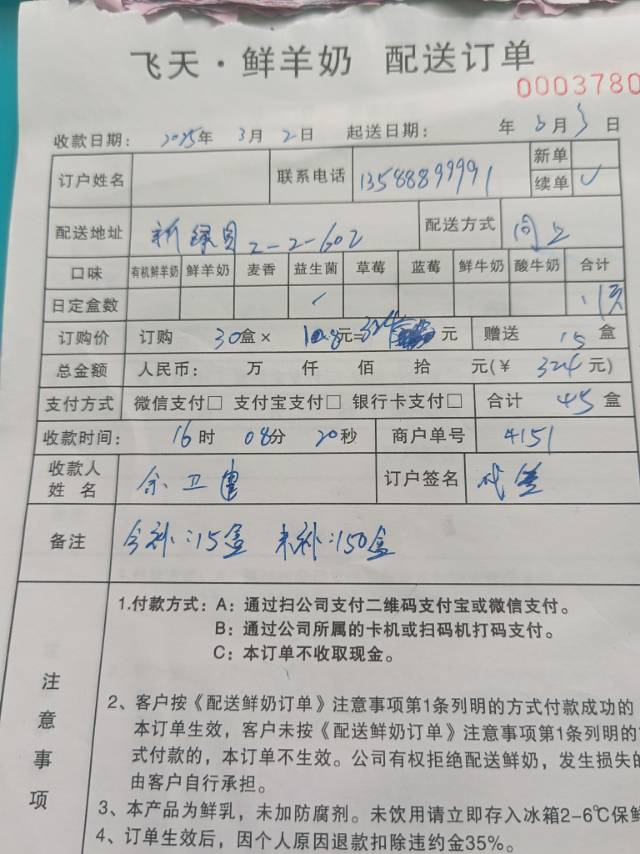 飞天·鲜羊奶 配送订单
0003780
收款日期: 2025年 3月 2日 起送日期: 年 3月 3日
订户姓名 联系电话 13588899991 新单
续单 ✓
配送地址 新绿园 2-2-602 配送方式 同上
口味 有机鲜羊奶 鲜羊奶 麦香 益生菌 草莓 蓝莓 鲜牛奶 酸牛奶 合计
日定盒数
订购价 订购 30盒× 10.8元=324 元 赠送 15 盒
总金额 人民币: 万 仟 佰 拾 元(¥ 324元)
支付方式 微信支付□ 支付宝支付□ 银行卡支付□ 合计 45 盒
收款时间: 16时 08分 20秒 商户单号 4151
收款人
姓 名 余卫建 订户签名 代签
备注 今补:15盒 未补:150盒
注意事项
1.付款方式:A:通过扫公司支付二维码支付宝或微信支付。
B:通过公司所属的卡机或扫码机打码支付。
C:本订单不收取现金。
2、客户按《配送鲜奶订单》注意事项第1条列明的方式付款成功的
本订单生效,客户未按《配送鲜奶订单》注意事项第1条列明的
式付款的,本订单不生效。公司有权拒绝配送鲜奶,发生损失的
由客户自行承担。
3、本产品为鲜乳,未加防腐剂。未饮用请立即存入冰箱2-6℃保鲜
4、订单生效后,因个人原因退款扣除违约金35%。